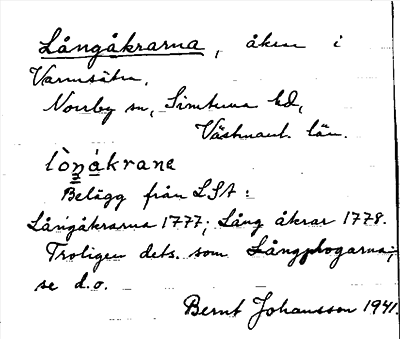 Långåkrarna, åker i
Varmsätra,
Norrby sn, Simtuna hd,
Västmanl. län.
lòŋákrane
Belägg från LSA:
Långåkrarna 1777; Lång åkrar 1778.
Troligen dets. som Långplogarna;
se d.o.
Bernt Johansson 1941.